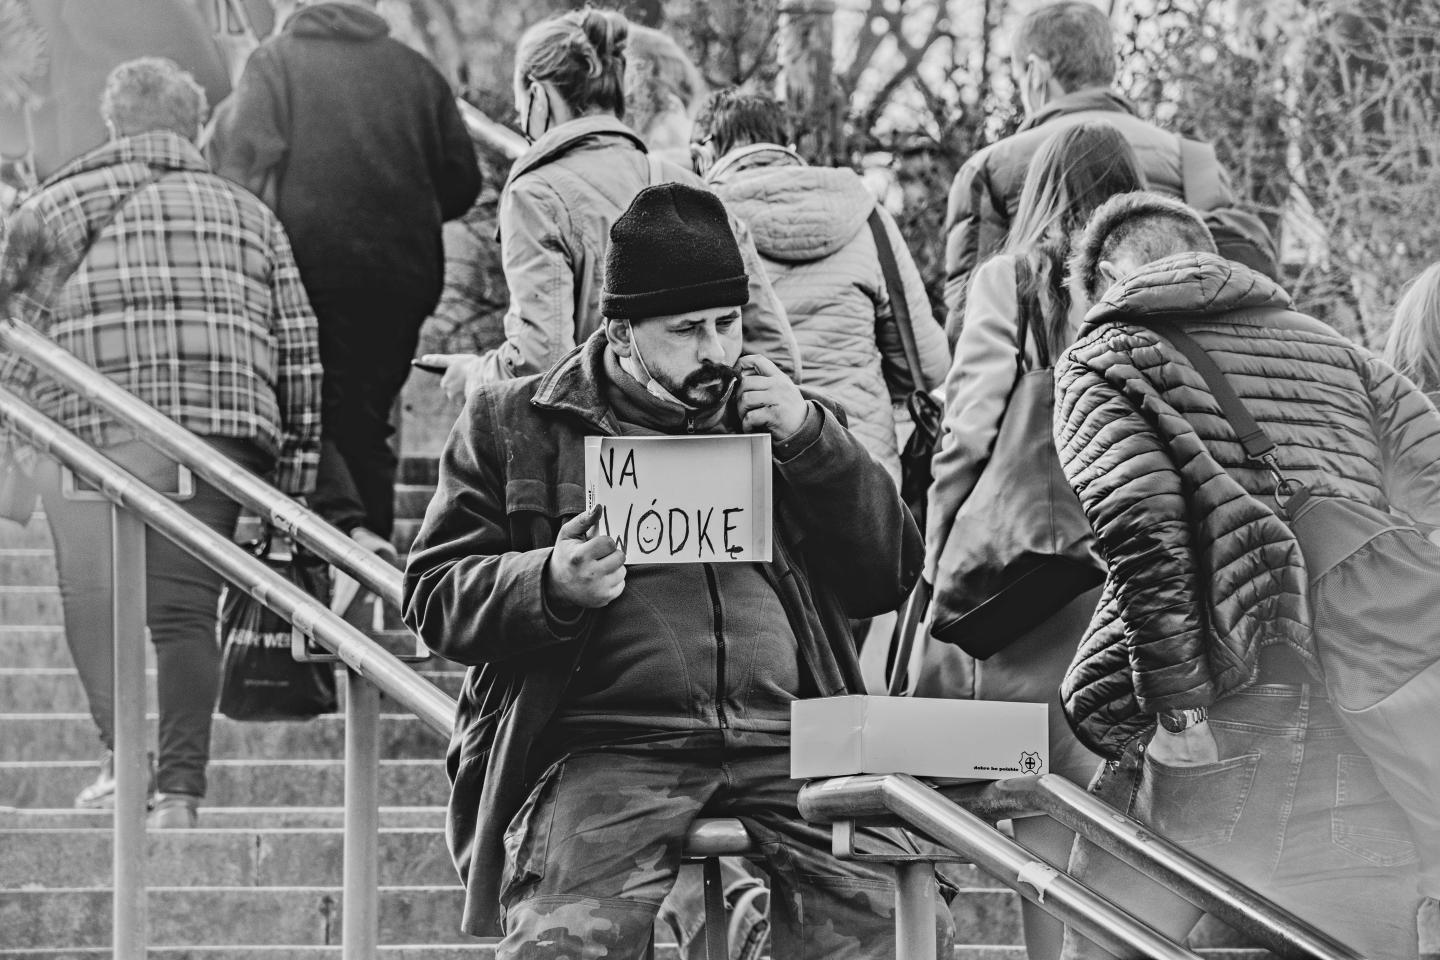 NA
WÓDKĘ
dobre bo polskie